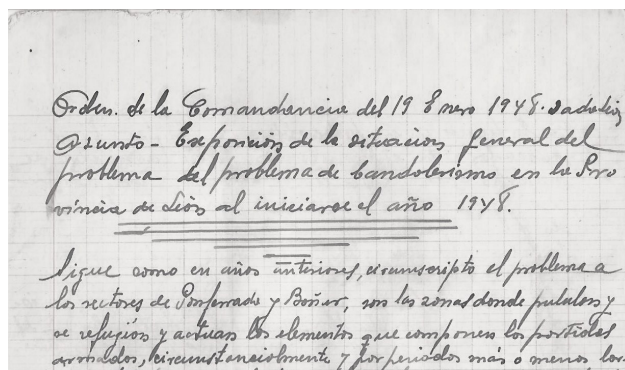 Orden. de la Comandancia del 19 Enero 1948.
Asunto - Exposición de la situación general del
problema del problema de bandolerismo en la Pro
vincia de León al iniciarse el año 1948.
Sigue como en años anteriores, circunscripto el problema a
los sectores de Ponferrada y Boñar, son las zonas donde pululan y
se refugian y actuan los elementos que componen las partidas
armadas, circunstancialmente y por periodos más o menos lar